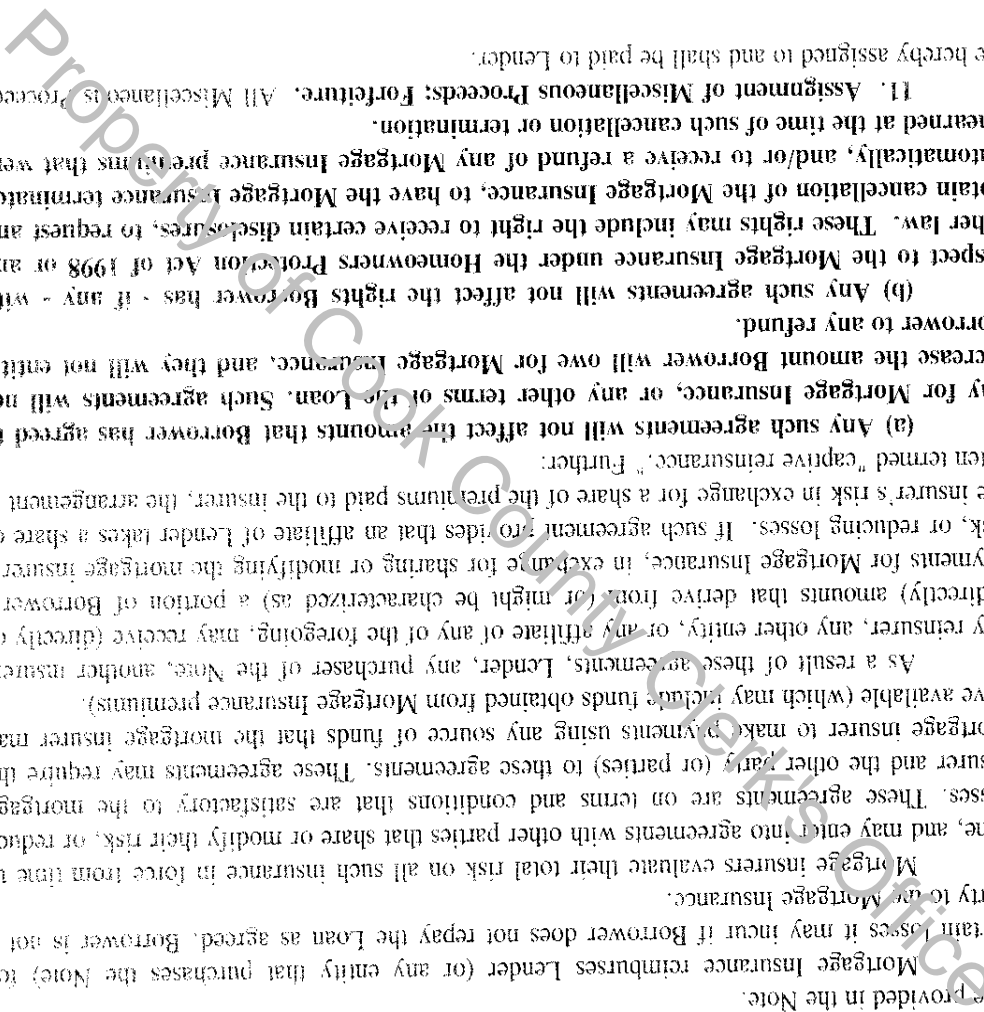 e provided in the Note.
Mortgage Insurance reimburses Lender (or any entity that purchases the Note) fo
rtain losses it may incur if Borrower does not repay the Loan as agreed. Borrower is not
rty to the Mortgage Insurance.
Mortgage insurers evaluate their total risk on all such insurance in force from time t
me, and may enter into agreements with other parties that share or modify their risk, or reduc
sses. These agreements are on terms and conditions that are satisfactory to the mortgag
surer and the other party (or parties) to these agreements. These agreements may require th
ortgage insurer to make payments using any source of funds that the mortgage insurer ma
ve available (which may include funds obtained from Mortgage Insurance premiums).
As a result of these agreements, Lender, any purchaser of the Note, another insure
y reinsurer, any other entity, or any affiliate of any of the foregoing, may receive (directly o
directly) amounts that derive from (or might be characterized as) a portion of Borrower
yments for Mortgage Insurance, in exchange for sharing or modifying the mortgage insurer
sk, or reducing losses. If such agreement provides that an affiliate of Lender takes a share o
e insurer's risk in exchange for a share of the premiums paid to the insurer, the arrangement
ten termed "captive reinsurance." Further:
(a) Any such agreements will not affect the amounts that Borrower has agreed t
ay for Mortgage Insurance, or any other terms of the Loan. Such agreements will no
crease the amount Borrower will owe for Mortgage Insurance, and they will not entitl
orrower to any refund.
(b) Any such agreements will not affect the rights Borrower has - if any - wit
spect to the Mortgage Insurance under the Homeowners Protection Act of 1998 or an
her law. These rights may include the right to receive certain disclosures, to request an
btain cancellation of the Mortgage Insurance, to have the Mortgage Insurance terminate
utomatically, and/or to receive a refund of any Mortgage Insurance premiums that wer
nearned at the time of such cancellation or termination.
11. Assignment of Miscellaneous Proceeds; Forfeiture. All Miscellaneous Proceed
e hereby assigned to and shall be paid to Lender.
Property of Cook County Clerk's Office